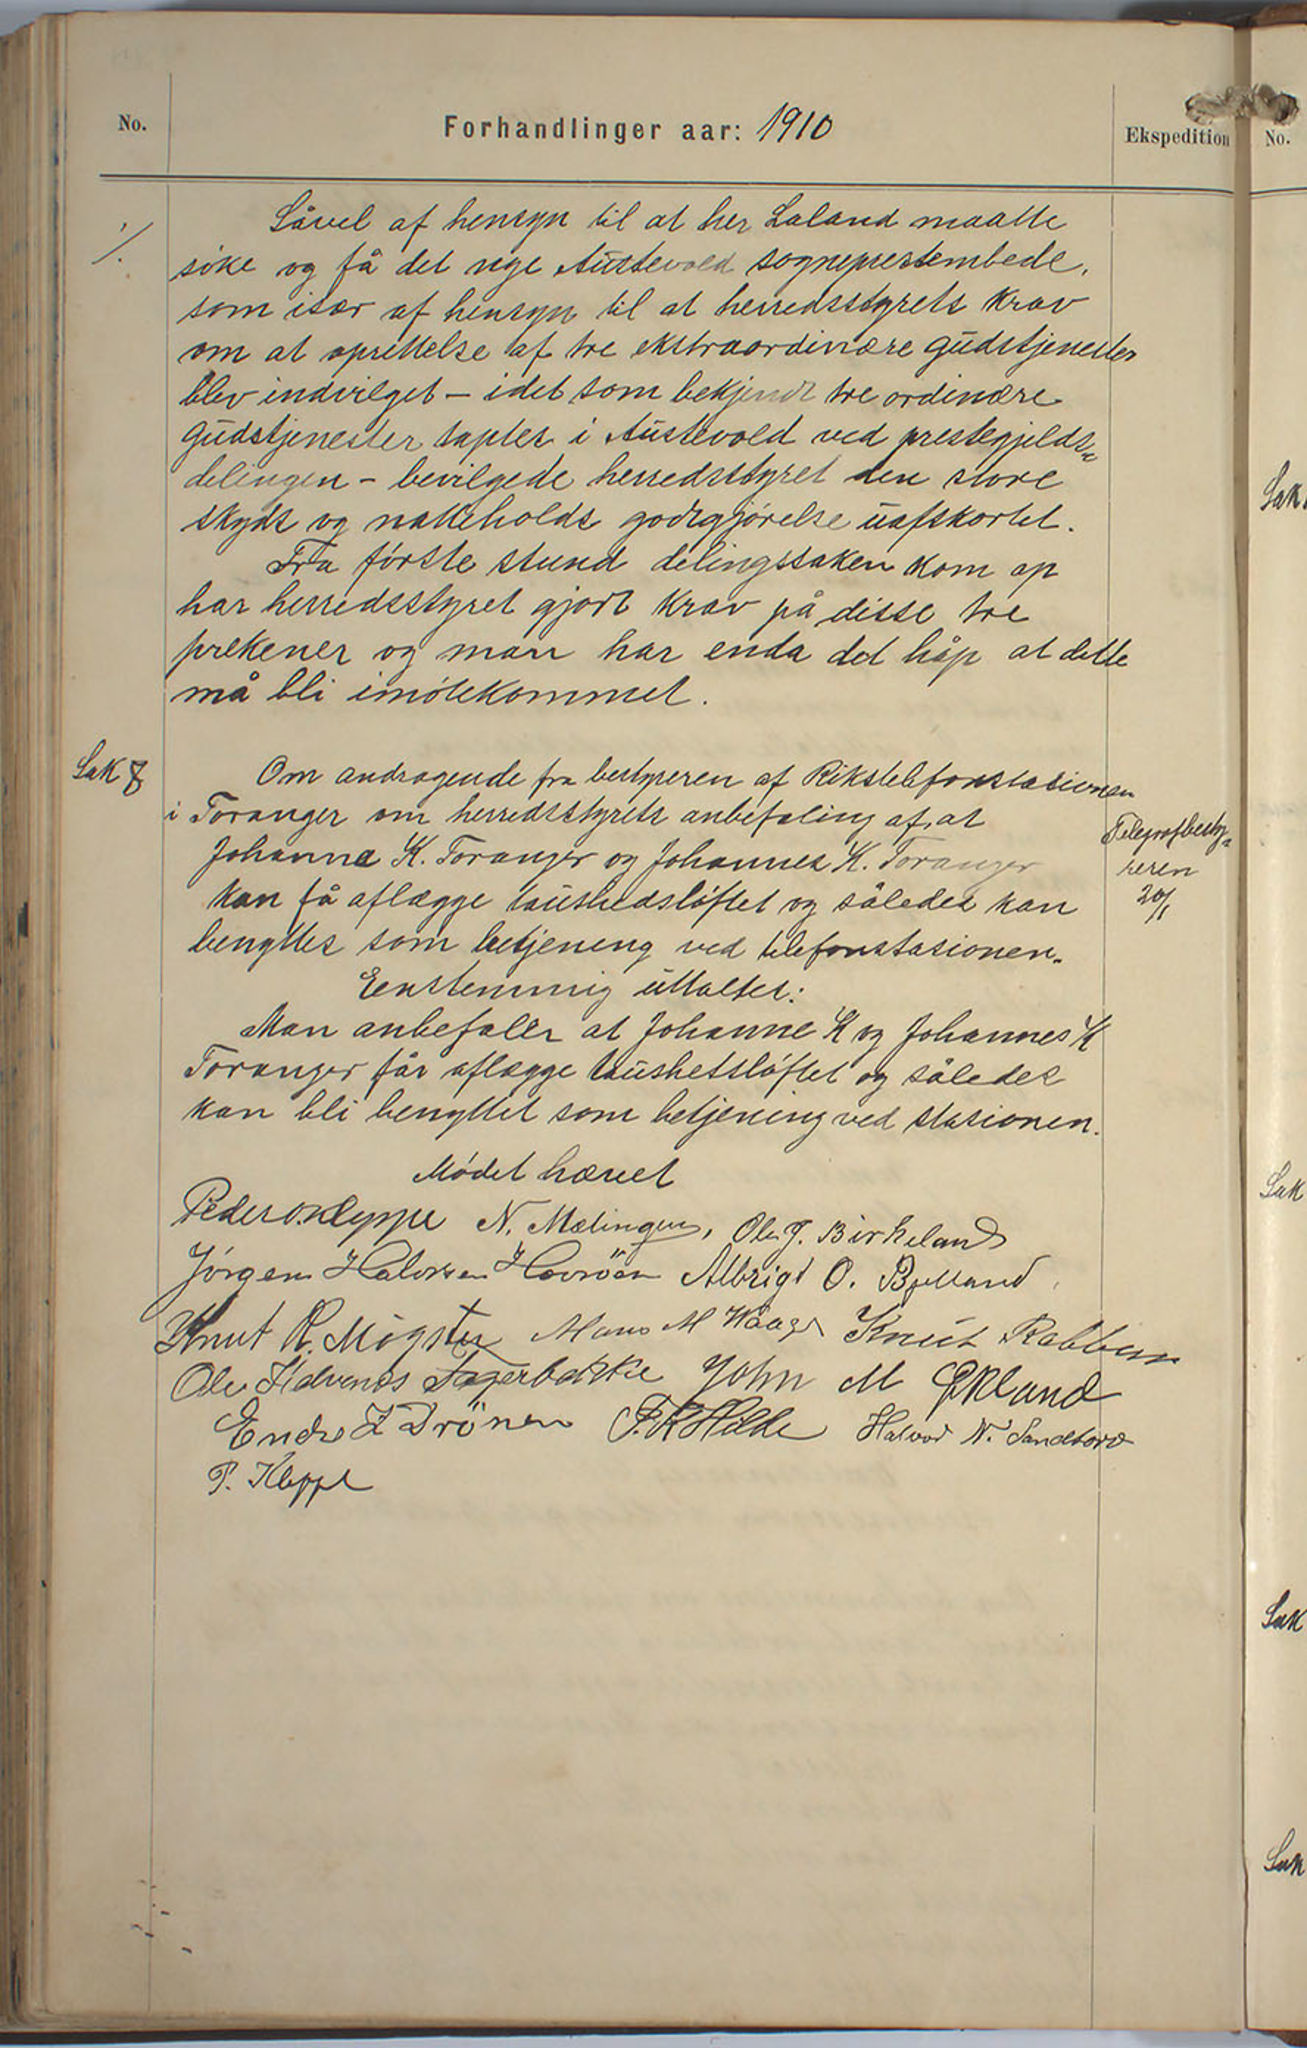 No.
Forhandlinger aar: 1910
Ekspedition
No.
·/.
Såvel af hensyn til at her Laland maatte
söke og få det nye Austevold sogneprestembede,
som især af hensyn til at herredsstyrets krav
om at oprettelse af tre ekstraordinære gudstjenester
blev indvilget – idet som bekjendt tre ordinære
gudstjenester taptes i Austevold ved prestegjelds-
delingen – bevilgede herredsstyret den store
skyds og natteholds godtgjörelse uafkortet.
Fra förste stund delingssaken kom op
har herredsstyret gjort krav på disse tre
prekener og man har enda det håp at dette
må bli imötekommet.
Sak 8
Om andragende fra bestyreren af Rikstelefonstasionen
i Toranger om herredsstyrets anbefaling af, at
Johanne K. Toranger og Johannes K. Toranger
kan få aflægge taushedslöftet og således kan
benyttes som betjening ved telefonstasionen.
Telegrafbesty-
reren
20/1
Eenstemmig uttaltes:
Man anbefaler at Johanne K og Johannes K
Toranger får aflægge taushetslöftet og således
kan bli benyttet som betjening ved stasionen.
Mödet hævet
Peder O. Kleppe N. Mælingen, Ole J. Birkeland
Jörgen Halvorsen Hovröen Albrigt O. Bjelland
Knut R. Mögster Mons M Waage Knut Rabben
Ole Halvenes Fagerbakke John M Økland
Endre I Drönen P. K Hilde Halvor N. Sandtorv
P. Kleppe
Sak
Sak
Sak
Sak